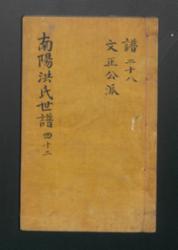 南陽洪氏世譜 四十二
譜 二十八
文正公派